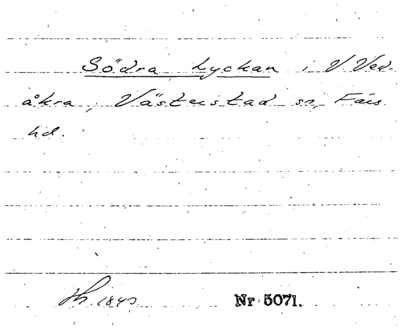 Södra Lyckan i V. Ved-
åkra, Västerstad sn, Färs
hd.
Th. 1840
Nr 5071.